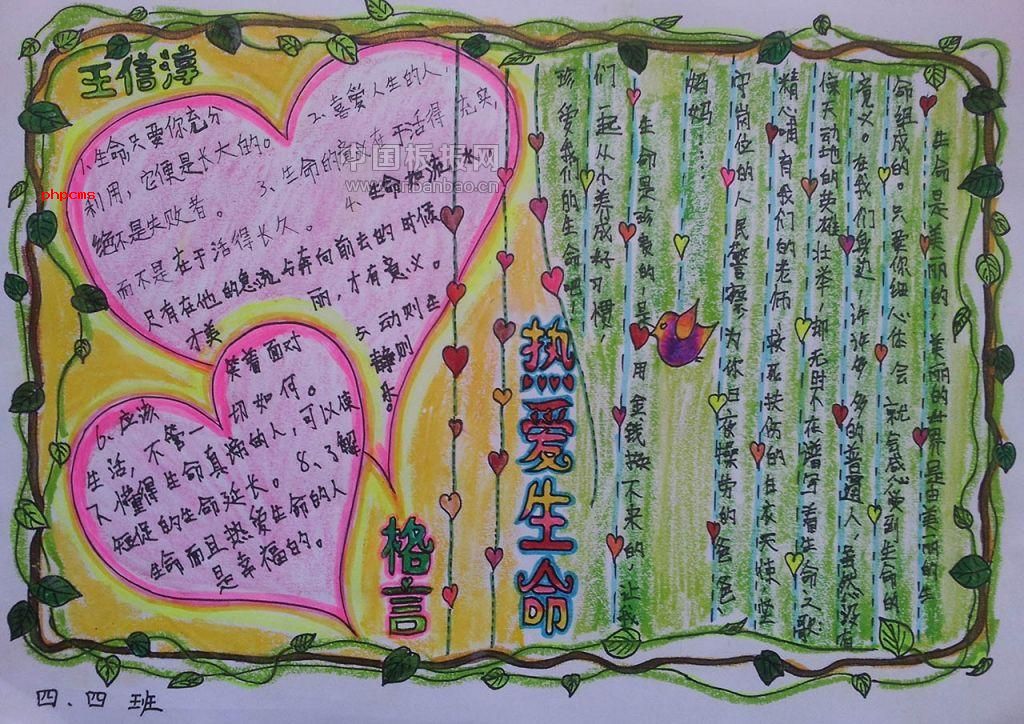 王信淳
1.生命只要你充分
利用，它便是长大的。
2、喜爱人生的人，
绝不是失败者。
3、生命的意义在于活得充实，
而不是在于活得长久。
4、生命如流水
只有在他的急流与奔向前去的时候
才美丽，才有意义。
与动则
静则
乐。
6、应该
笑着面对
生活，不管一切如何。
7、懂得生命真谛的人，可以使
短促的生命延长。
8、了解
生命而且热爱生命的人
是幸福的。
格言
热爱生命
生命是美丽的
美丽的世界是由美丽的生
命组成的。只要你细心体会
就会感受到生命的
意义。在我们身边，许许多多的普通人，虽然没有
惊天动地的英雄壮举
却无时不在谱写着生命之歌
精心哺育我们的老师
救死扶伤的白衣天使
坚
守岗位的人民警察
为你日夜操劳的爸爸、
妈妈……
生命是
用金钱换不来的，让我
们一起从小养成好习惯，
爱我们的生命吧！
四.四班
中国板报网
phpcms